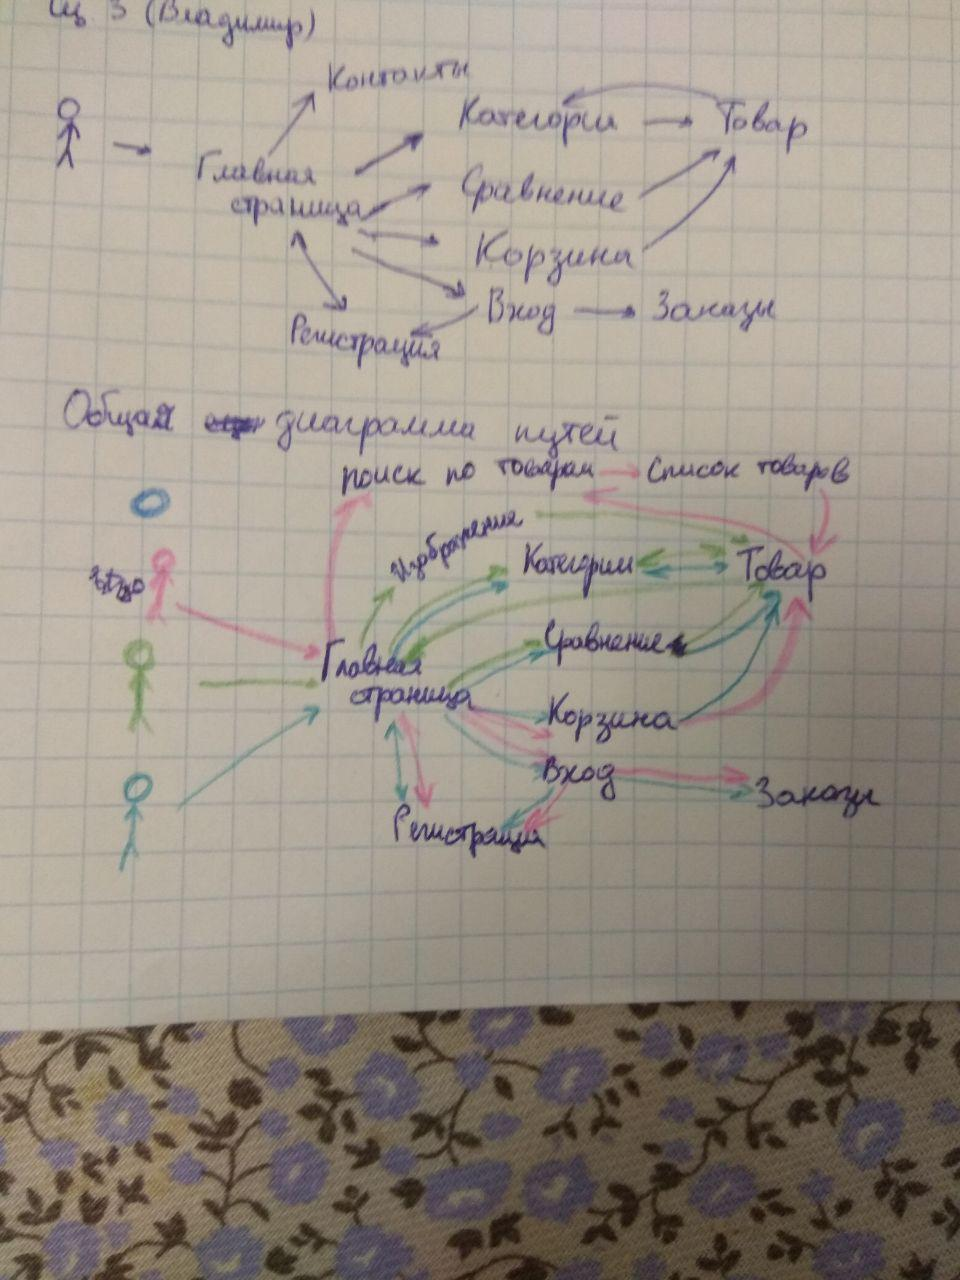 Сц. 3 (Владимир)
Контакты
Категории
Товар
Главная
страница
Сравнение
Корзина
Вход
Заказы
Регистрация
Общая диаграмма путей
поиск по товарам
Список товаров
Изображения
Категории
Товар
Главная
страница
Сравнение
Корзина
Вход
Заказы
Регистрация